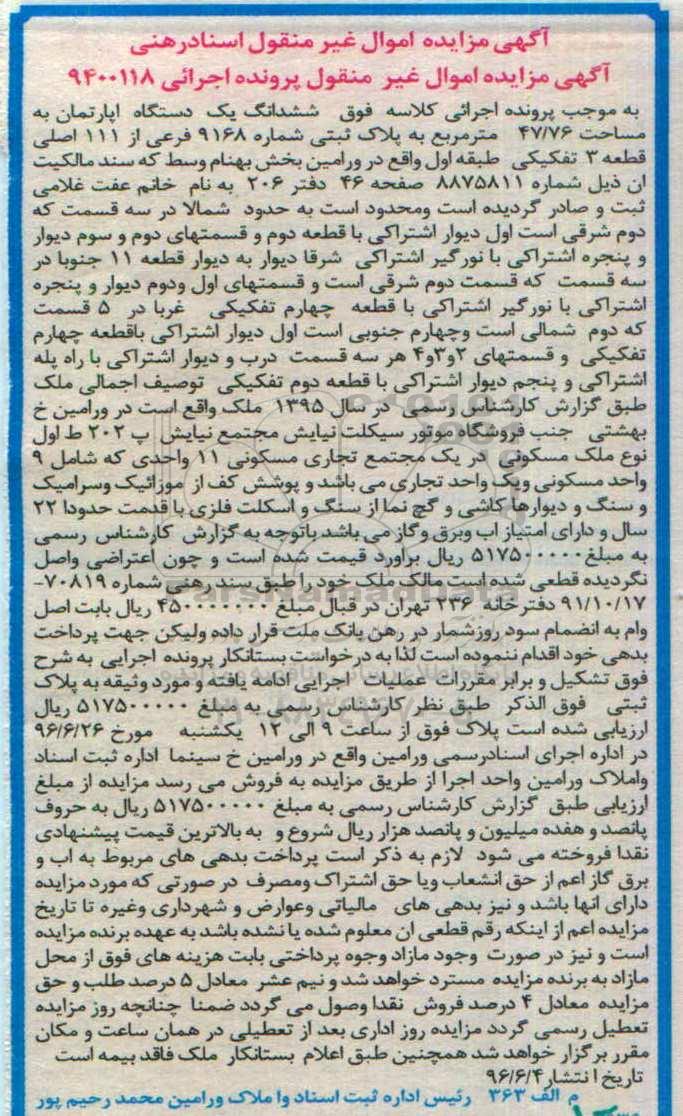 آگهی مزایده اموال غیر منقول اسنادرهنی
آگهی مزایده اموال غیر منقول پرونده اجرائی ۹۴۰۰۱۱۸
به موجب پرونده اجرائی کلاسه فوق ششدانگ یک دستگاه اپارتمان به
مساحت ۴۷/۷۶ مترمربع به پلاک ثبتی شماره ۹۱۶۸ فرعی از ۱۱۱ اصلی
قطعه ۳ تفکیکی طبقه اول واقع در ورامین بخش بهنام وسط که سند مالکیت
ان ذیل شماره ۸۸۷۵۸۱۱ صفحه ۴۶ دفتر ۲۰۶ به نام خانم عفت غلامی
ثبت و صادر گردیده است ومحدود است به حدود شمالا در سه قسمت که
دوم شرقی است اول دیوار اشتراکی با قطعه دوم و قسمتهای دوم و سوم دیوار
و پنجره اشتراکی با نورگیر اشتراکی شرقا دیوار به دیوار قطعه ۱۱ جنوبا در
سه قسمت که قسمت دوم شرقی است و قسمتهای اول ودوم دیوار و پنجره
اشتراکی با نورگیر اشتراکی با قطعه چهارم تفکیکی غربا در ۵ قسمت
که دوم شمالی است وچهارم جنوبی است اول دیوار اشتراکی باقطعه چهارم
تفکیکی و قسمتهای ۲و۳و۴ هر سه قسمت درب و دیوار اشتراکی با راه پله
اشتراکی و پنجم دیوار اشتراکی با قطعه دوم تفکیکی توصیف اجمالی ملک
طبق گزارش کارشناس رسمی در سال ۱۳۹۵ ملک واقع است در ورامین خ
بهشتی جنب فروشگاه موتور سیکلت نیایش مجتمع نیایش پ ۲۰۲ ط اول
نوع ملک مسکونی در یک مجتمع تجاری مسکونی ۱۱ واحدی که شامل ۹
واحد مسکونی ویک واحد تجاری می باشد و پوشش کف از موزائیک وسرامیک
و سنگ و دیوارها کاشی و گچ نما از سنگ و اسکلت فلزی با قدمت حدودا ۲۲
سال و دارای امتیاز اب وبرق وگاز می باشد باتوجه به گزارش کارشناس رسمی
به مبلغ ۵۱۷۵۰۰۰۰۰ ریال براورد قیمت شده است و چون اعتراضی واصل
نگردیده قطعی شده است مالک ملک خود را طبق سند رهنی شماره ۷۰۸۱۹-
۹۱/۱۰/۱۷ دفترخانه ۲۳۶ تهران در قبال مبلغ ۴۵۰۰۰۰۰۰۰ ریال بابت اصل
وام به انضمام سود روزشمار در رهن بانک ملت قرار داده ولیکن جهت پرداخت
بدهی خود اقدام ننموده است لذا به درخواست بستانکار پرونده اجرایی به شرح
فوق تشکیل و برابر مقررات عملیات اجرایی ادامه یافته و مورد وثیقه به پلاک
ثبتی فوق الذکر طبق نظر کارشناس رسمی به مبلغ ۵۱۷۵۰۰۰۰۰ ریال
ارزیابی شده است پلاک فوق از ساعت ۹ الی ۱۲ یکشنبه مورخ ۹۶/۶/۲۶
در اداره اجرای اسنادرسمی ورامین واقع در ورامین خ سینما اداره ثبت اسناد
واملاک ورامین واحد اجرا از طریق مزایده به فروش می رسد مزایده از مبلغ
ارزیابی طبق گزارش کارشناس رسمی به مبلغ ۵۱۷۵۰۰۰۰۰ ریال به حروف
پانصد و هفده میلیون و پانصد هزار ریال شروع و به بالاترین قیمت پیشنهادی
نقدا فروخته می شود لازم به ذکر است پرداخت بدهی های مربوط به اب و
برق گاز اعم از حق انشعاب ویا حق اشتراک ومصرف در صورتی که مورد مزایده
دارای انها باشد و نیز بدهی های مالیاتی وعوارض و شهرداری وغیره تا تاریخ
مزایده اعم از اینکه رقم قطعی ان معلوم شده یا نشده باشد به عهده برنده مزایده
است و نیز در صورت وجود مازاد وجوه پرداختی بابت هزینه های فوق از محل
مازاد به برنده مزایده مسترد خواهد شد و نیم عشر معادل ۵ درصد طلب و حق
مزایده معادل ۴ درصد فروش نقدا وصول می گردد ضمنا چنانچه روز مزایده
تعطیل رسمی گردد مزایده روز اداری بعد از تعطیلی در همان ساعت و مکان
مقرر برگزار خواهد شد همچنین طبق اعلام بستانکار ملک فاقد بیمه است
تاریخ انتشار ۹۶/۶/۴
م الف ۳۶۳ رئیس اداره ثبت اسناد وا ملاک ورامین محمد رحیم پور